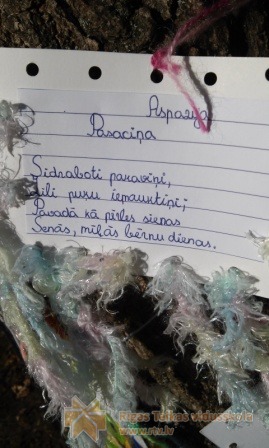 Aspazija
Pasaciņa
Sidraboti pavasiņi,
Zili puķu iepaustiņi;
Pasadā kā pērles sienas
Senās, mīļās bērnu dienas.
Rīgas Teikas vidusskola
www.rtv.lv